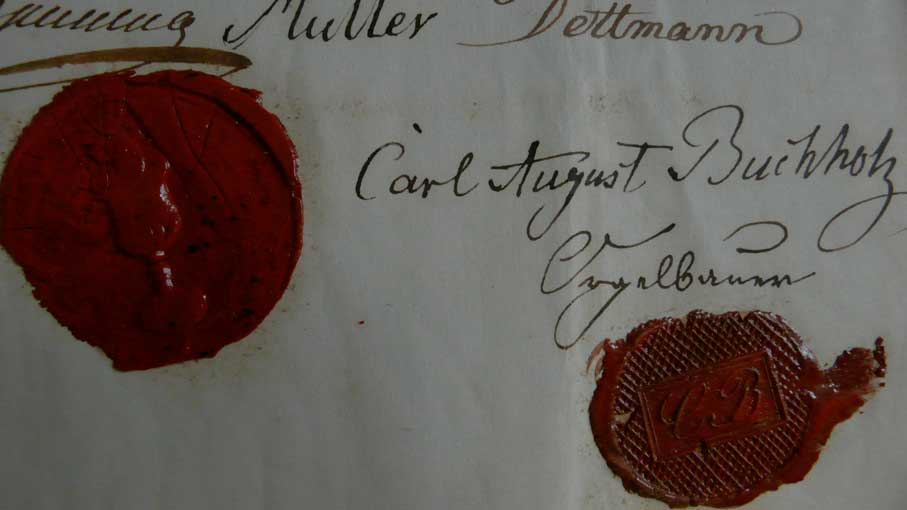 Müller Dettmann
Carl August Buchholz
Orgelbauer
CB